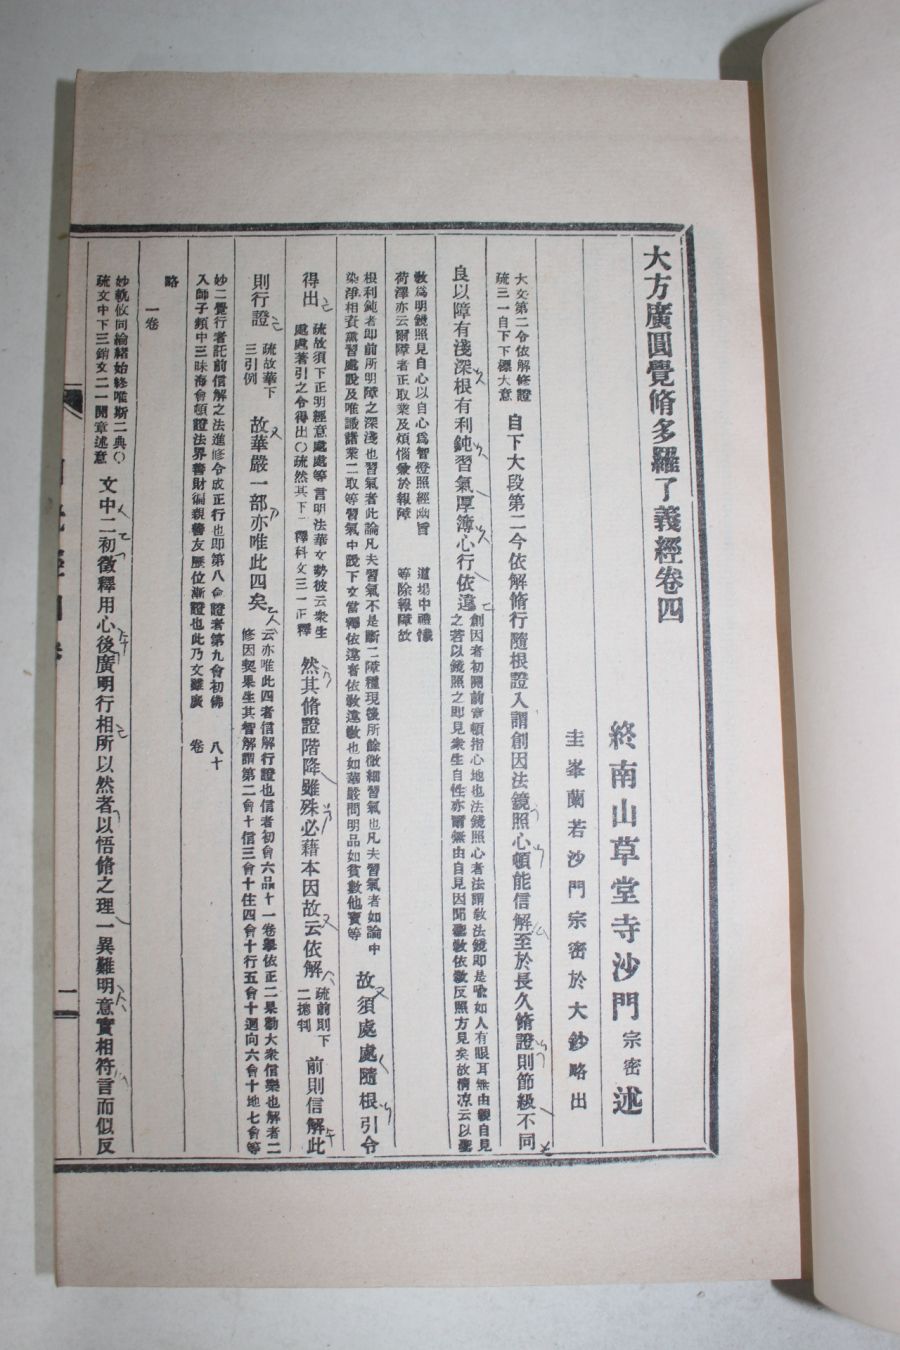 大方廣圓覺脩多羅了義經卷四
終南山草堂寺沙門宗密述
圭峯蘭若沙門宗密於大鈔略出
大文第二令依解修證
疏三一自下下標大意
自下大段第二令依解脩行隨根證入謂創因法鏡照心頓能信解至於長久脩證則節級不同
良以障有淺深根有利鈍習氣厚簿心行依違
創因者初開前章頓指心地也法鏡照心者法謂敎法鏡即是喩如人有眼耳無由親自見
之若以鏡照之即見衆生自性亦爾無由自見因聞聖敎依敎反照方見矣故淸凉云以聖
敎爲明鏡照見自心以自心爲智燈照經幽旨
荷澤亦云爾障者正取業及煩惱兼於報障
道場中禮懺
等除報障故
根利鈍者即前所明障之深淺也習氣者此論凡夫習氣不是斷二障種現後所餘微細習氣也凡夫習氣者如論中
染淨相資熏習處說及唯識諸業二取等習氣中說下文當釋依違者依敎違敎也如華嚴問明品如貧數他寶等
故須處處隨根引令
得出
疏故須下正明經意處處等言明法華文勢彼云衆生
處處著引之令得出〇疏然其下二釋科文三一正釋
然其脩證階降雖殊必藉本因故云依解
疏前則下
二揔判
前則信解此
則行證
疏故華下
三引例
故華嚴一部亦唯此四矣
云亦唯此四者信解行證也信者初會六品十一卷擧依正二果勸大衆信樂也解者二
修因契果生其智解謂第二會十信三會十住四會十行五會十迴向六會十地七會等
妙二覺行者託前信解之法進修令成正行也即第八會證者第九會初佛
入師子頻申三昧海會頓證法界善財徧親善友歷位漸證也此乃文雖廣
八十
卷
略
一卷
妙軌攸同論緒始終唯斯二典〇
疏文中下三銷文二一開章述意
文中二初徵釋用心後廣明行相所以然者以悟脩之理一異難明意實相符言而似反
一